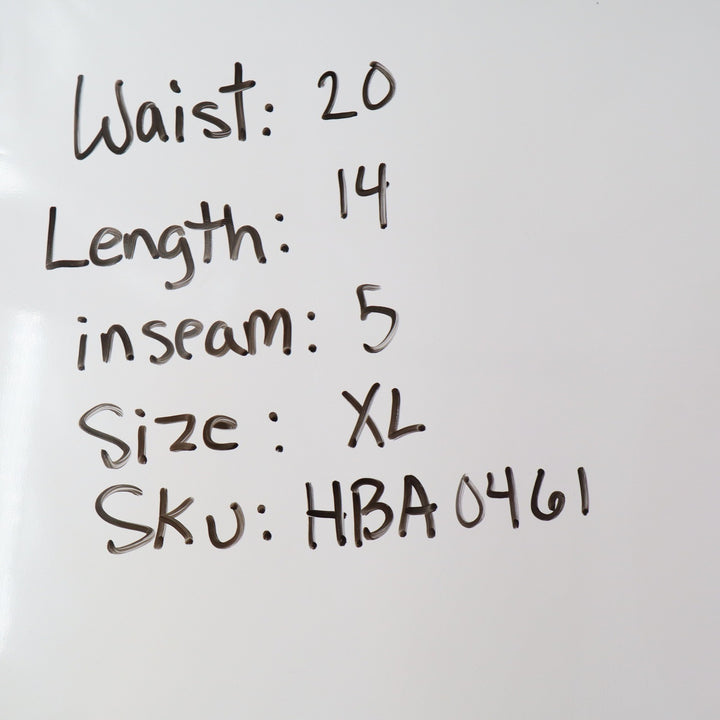 Waist: 20
Length: 14
inseam: 5
Size: XL
SKU: HBA0461